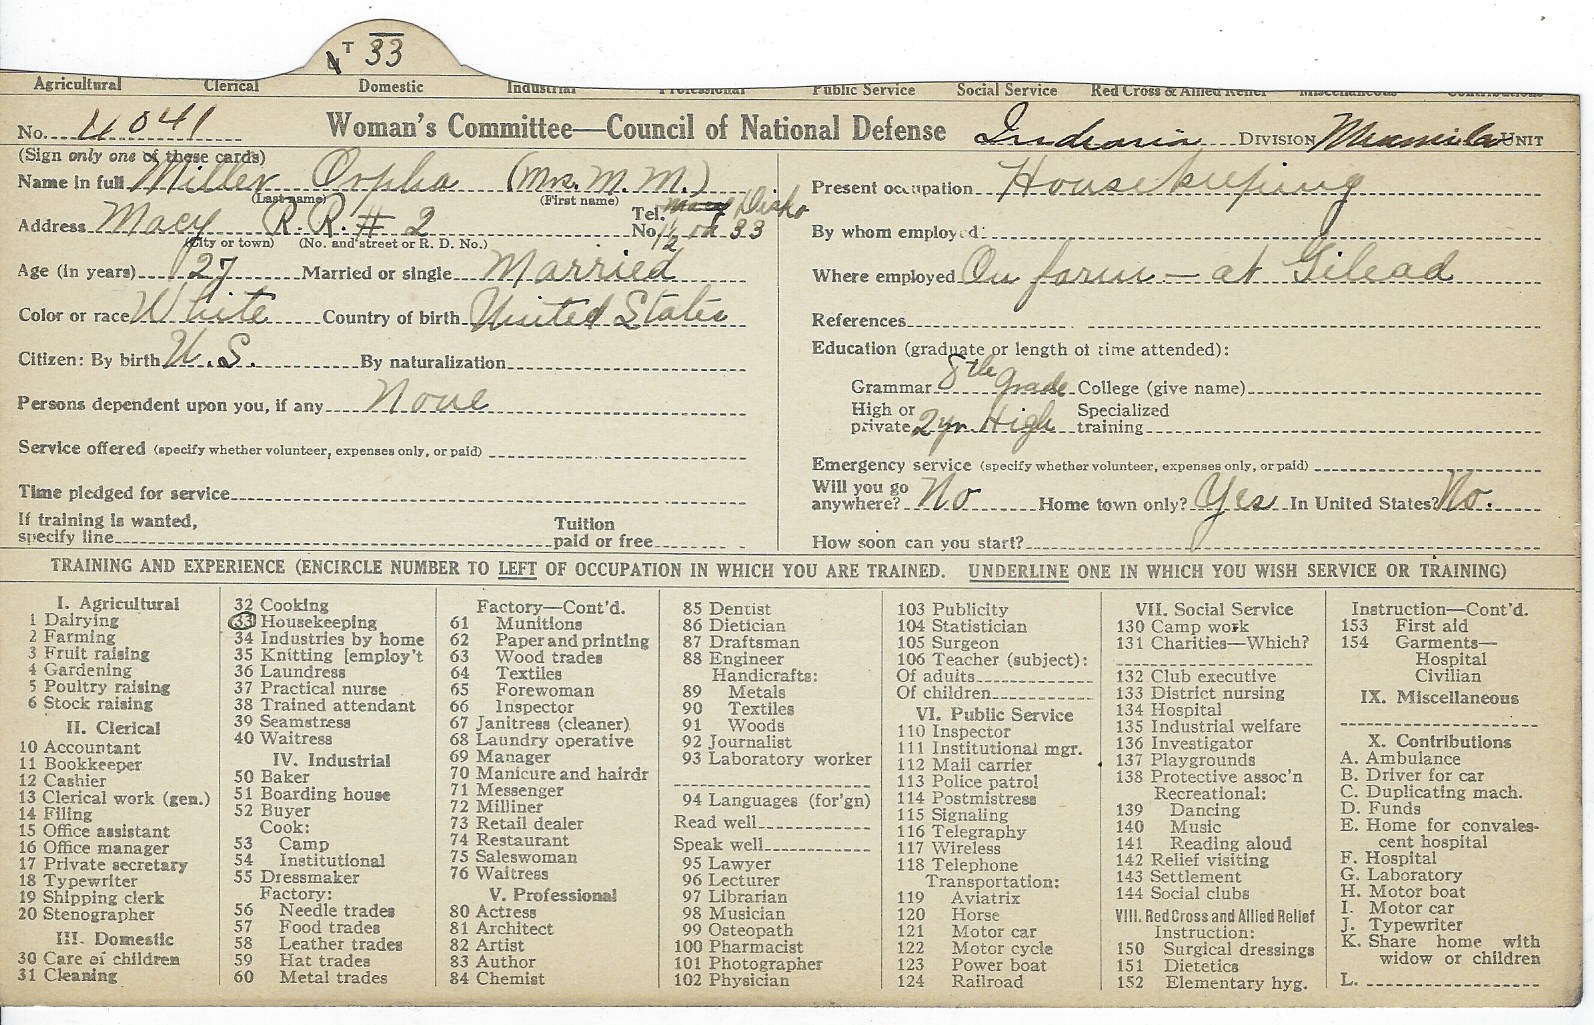 T 33
Agricultural Clerical Domestic Industrial Professional Public Service Social Service Red Cross & Allied Relief Miscellaneous Contributions
No. 4041 Woman's Committee—Council of National Defense Indiana DIVISION UNIT
(Sign only one of these cards)
Name in full Miller Orpha (Mrs. M. M.)
(Last name) (First name)
Address Macy R.R. # 2 Tel. No. Macy
(City or town) (No. and street or R. D. No.)
Age (in years) 27 Married or single Married
Color or race White Country of birth United States
Citizen: By birth U.S. By naturalization
Persons dependent upon you, if any None
Service offered (specify whether volunteer, expenses only, or paid)
Time pledged for service
If training is wanted,
specify line Tuition paid or free
Present occupation Housekeeping
By whom employed:
Where employed On farm — at Gilead
References
Education (graduate or length of time attended):
Grammar 8th grade College (give name)
High or private 2 yr. High Specialized training
Emergency service (specify whether volunteer, expenses only, or paid)
Will you go anywhere? No Home town only? Yes In United States? No.
How soon can you start?
TRAINING AND EXPERIENCE (ENCIRCLE NUMBER TO LEFT OF OCCUPATION IN WHICH YOU ARE TRAINED. UNDERLINE ONE IN WHICH YOU WISH SERVICE OR TRAINING)
I. Agricultural
1 Dairying
2 Farming
3 Fruit raising
4 Gardening
5 Poultry raising
6 Stock raising
II. Clerical
10 Accountant
11 Bookkeeper
12 Cashier
13 Clerical work (gen.)
14 Filing
15 Office assistant
16 Office manager
17 Private secretary
18 Typewriter
19 Shipping clerk
20 Stenographer
III. Domestic
30 Care of children
31 Cleaning
32 Cooking
33 Housekeeping
34 Industries by home
35 Knitting [employ't
36 Laundress
37 Practical nurse
38 Trained attendant
39 Seamstress
40 Waitress
IV. Industrial
50 Baker
51 Boarding house
52 Buyer
Cook:
53 Camp
54 Institutional
55 Dressmaker
Factory:
56 Needle trades
57 Food trades
58 Leather trades
59 Hat trades
60 Metal trades
Factory—Cont'd.
61 Munitions
62 Paper and printing
63 Wood trades
64 Textiles
65 Forewoman
66 Inspector
67 Janitress (cleaner)
68 Laundry operative
69 Manager
70 Manicure and hairdr
71 Messenger
72 Milliner
73 Retail dealer
74 Restaurant
75 Saleswoman
76 Waitress
V. Professional
80 Actress
81 Architect
82 Artist
83 Author
84 Chemist
85 Dentist
86 Dietician
87 Draftsman
88 Engineer
Handicrafts:
89 Metals
90 Textiles
91 Woods
92 Journalist
93 Laboratory worker
94 Languages (for'gn)
Read well
Speak well
95 Lawyer
96 Lecturer
97 Librarian
98 Musician
99 Osteopath
100 Pharmacist
101 Photographer
102 Physician
103 Publicity
104 Statistician
105 Surgeon
106 Teacher (subject):
Of adults
Of children
VI. Public Service
110 Inspector
111 Institutional mgr.
112 Mail carrier
113 Police patrol
114 Postmistress
115 Signaling
116 Telegraphy
117 Wireless
118 Telephone
Transportation:
119 Aviatrix
120 Horse
121 Motor car
122 Motor cycle
123 Power boat
124 Railroad
VII. Social Service
130 Camp work
131 Charities—Which?
132 Club executive
133 District nursing
134 Hospital
135 Industrial welfare
136 Investigator
137 Playgrounds
138 Protective assoc'n
Recreational:
139 Dancing
140 Music
141 Reading aloud
142 Relief visiting
143 Settlement
144 Social clubs
VIII. Red Cross and Allied Relief
Instruction:
150 Surgical dressings
151 Dietetics
152 Elementary hyg.
Instruction—Cont'd.
153 First aid
154 Garments—
Hospital
Civilian
IX. Miscellaneous
X. Contributions
A. Ambulance
B. Driver for car
C. Duplicating mach.
D. Funds
E. Home for convales-
cent hospital
F. Hospital
G. Laboratory
H. Motor boat
I. Motor car
J. Typewriter
K. Share home with
widow or children
L.